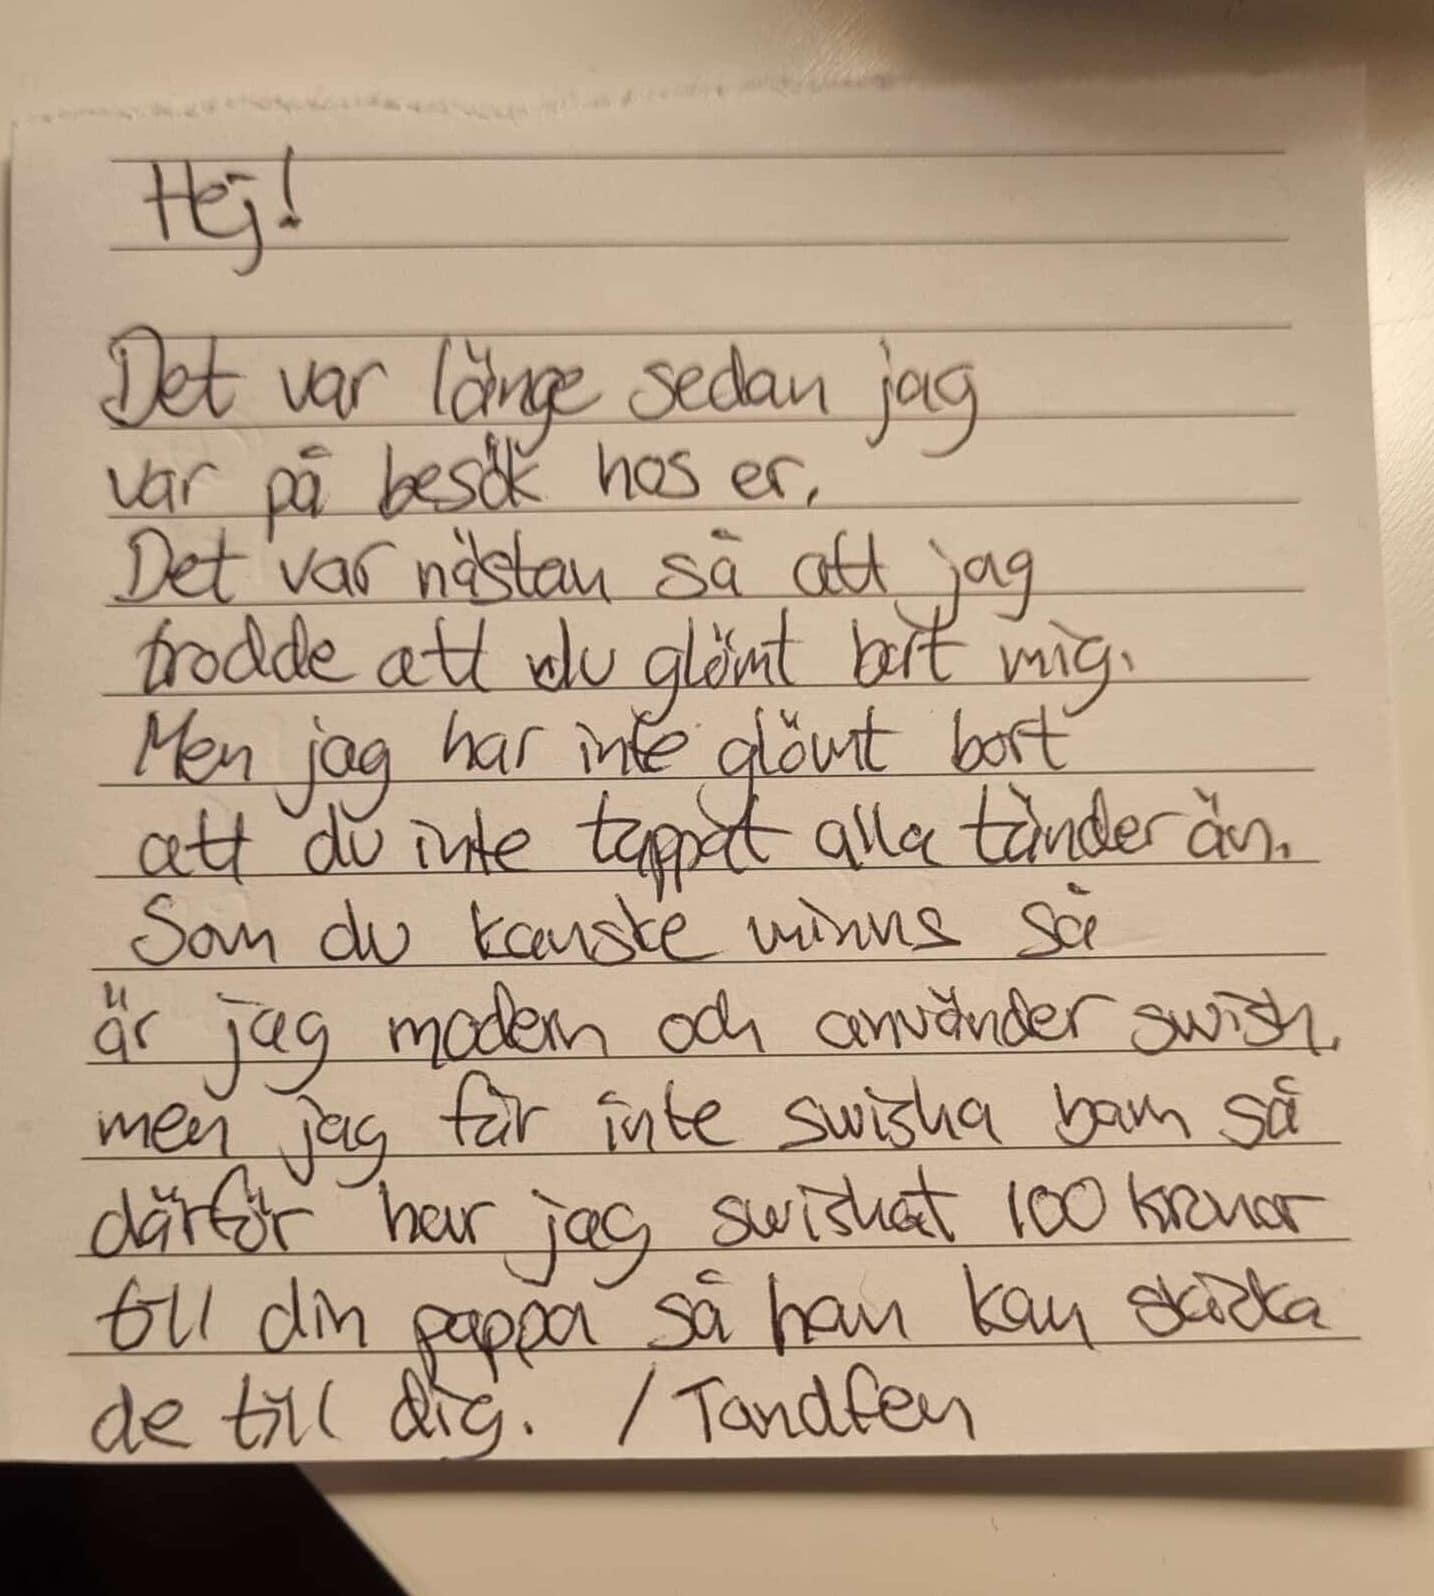 Hej!
Det var länge sedan jag
var på besök hos er.
Det var nästan så att jag
trodde att du glömt bort mig.
Men jag har inte glömt bort
att du inte tappat alla tänder än.
Som du kanske minns så
är jag modern och använder swish,
men jag får inte swisha barn så
därför har jag swishat 100 kronor
till din pappa så han kan skicka
de till dig. /Tandfen